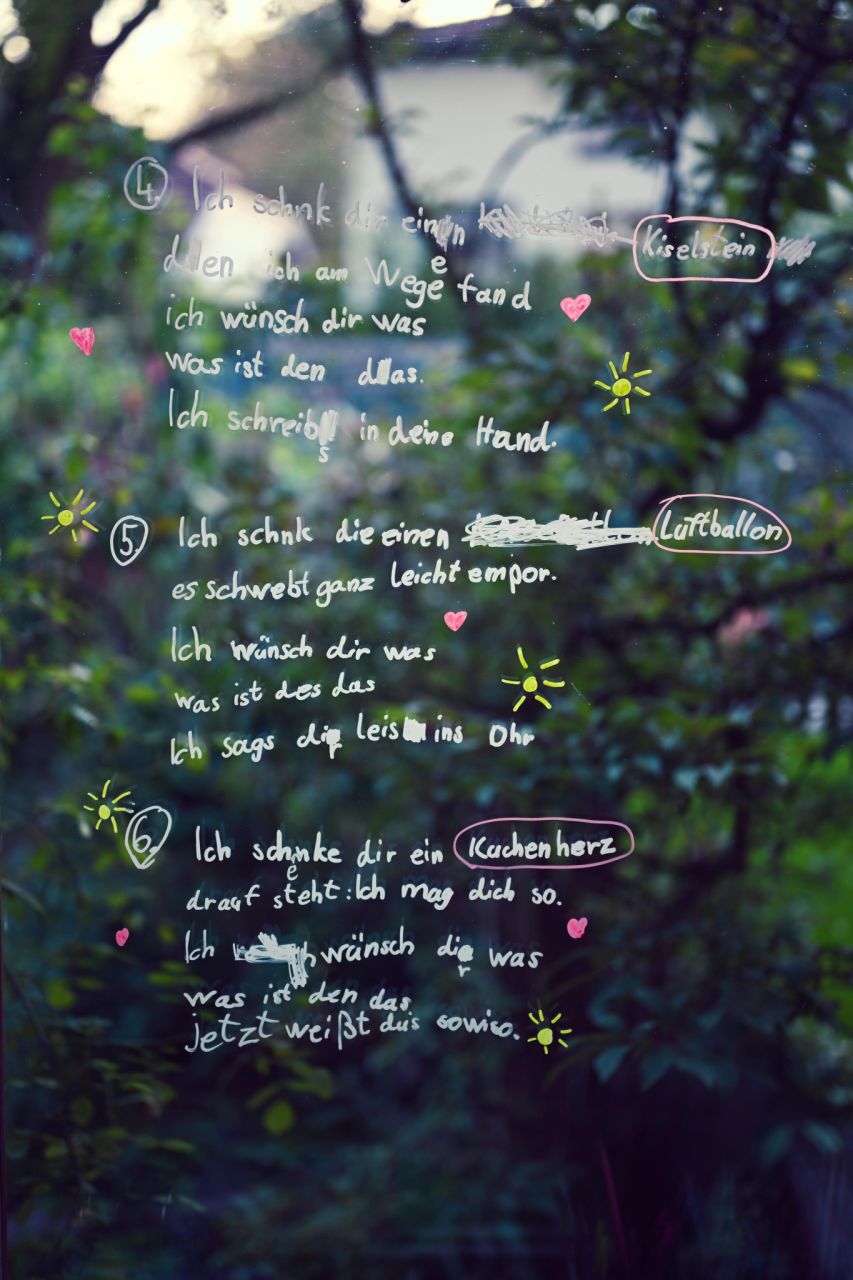 4. Ich schnk dir einen Kiselstein
den ich am Wege fand
ich wünsch dir was
was ist den das.
Ich schreibs in deine Hand.
5. Ich schnk die einen Luftballon
es schwebt ganz leicht empor.
Ich wünsch dir was
was ist des das
Ich sags dir leis ins Ohr
6. Ich schenke dir ein Kuchenherz
drauf steht: Ich mag dich so.
Ich wünsch dir was
was ist den das
jetzt weißt dus sowiso.